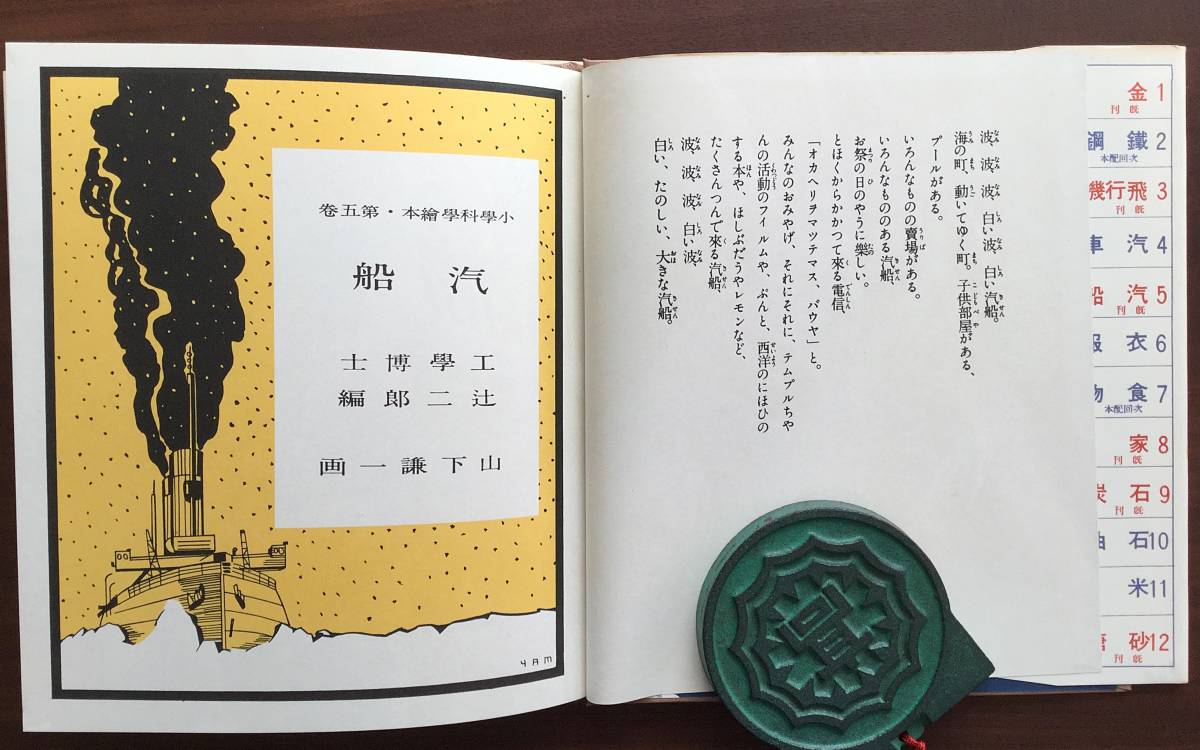 小學科學繪本・第五卷
汽船
工學博士
辻二郎編
山下謙一画
YAM
波、波、波、白い波、白い汽船。
海の町、動いてゆく町。子供部屋がある、
プールがある。
いろんなものの賣場がある。
いろんなもののある汽船、
お祭の日のやうに樂しい。
とほくからかかつて來る電信、
「オカヘリヲマツテマス、パウヤ」と。
みんなのおみやげ、それにそれに、テムプルちや
んの活動のフイルムや、ぷんと、西洋のにほひの
する本や、ほしぶだうやレモンなど、
たくさんつんで來る汽船、
波、波、波、白い波、
白い、たのしい、大きな汽船。
金1
既刊
鐵鋼2
次回配本
飛行機3
既刊
汽車4
汽船5
既刊
衣服6
食物7
次回配本
家8
既刊
石炭9
既刊
石油10
米11
砂糖12
既刊